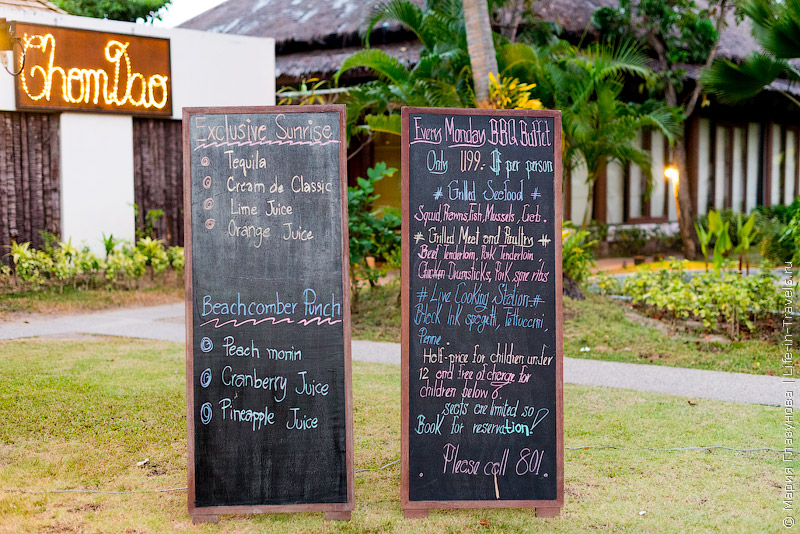 ChomDao
Exclusive Sunrise
Tequila
Cream de Classic
Lime Juice
Orange Juice
Beachcomber Punch
Peach monin
Cranberry Juice
Pineapple Juice
Every Monday BBQ Buffet
Only 1199.-฿ per person
# Grilled Seafood #
Squid, Prawns, Fish, Mussels, Crab.
# Grilled Meat and Poultry #
Beef Tenderloin, Pork Tenderloin,
Chicken Drumsticks, Pork spare ribs
# Live Cooking Station #
Black ink spagetti, Fettuccini,
Penne.
Half-price for children under
12 and free of charge for
children below 6.
seats are limited so
Book for reservation!
Please call 801
© Мария Глазунова | Life-in-Travels.ru